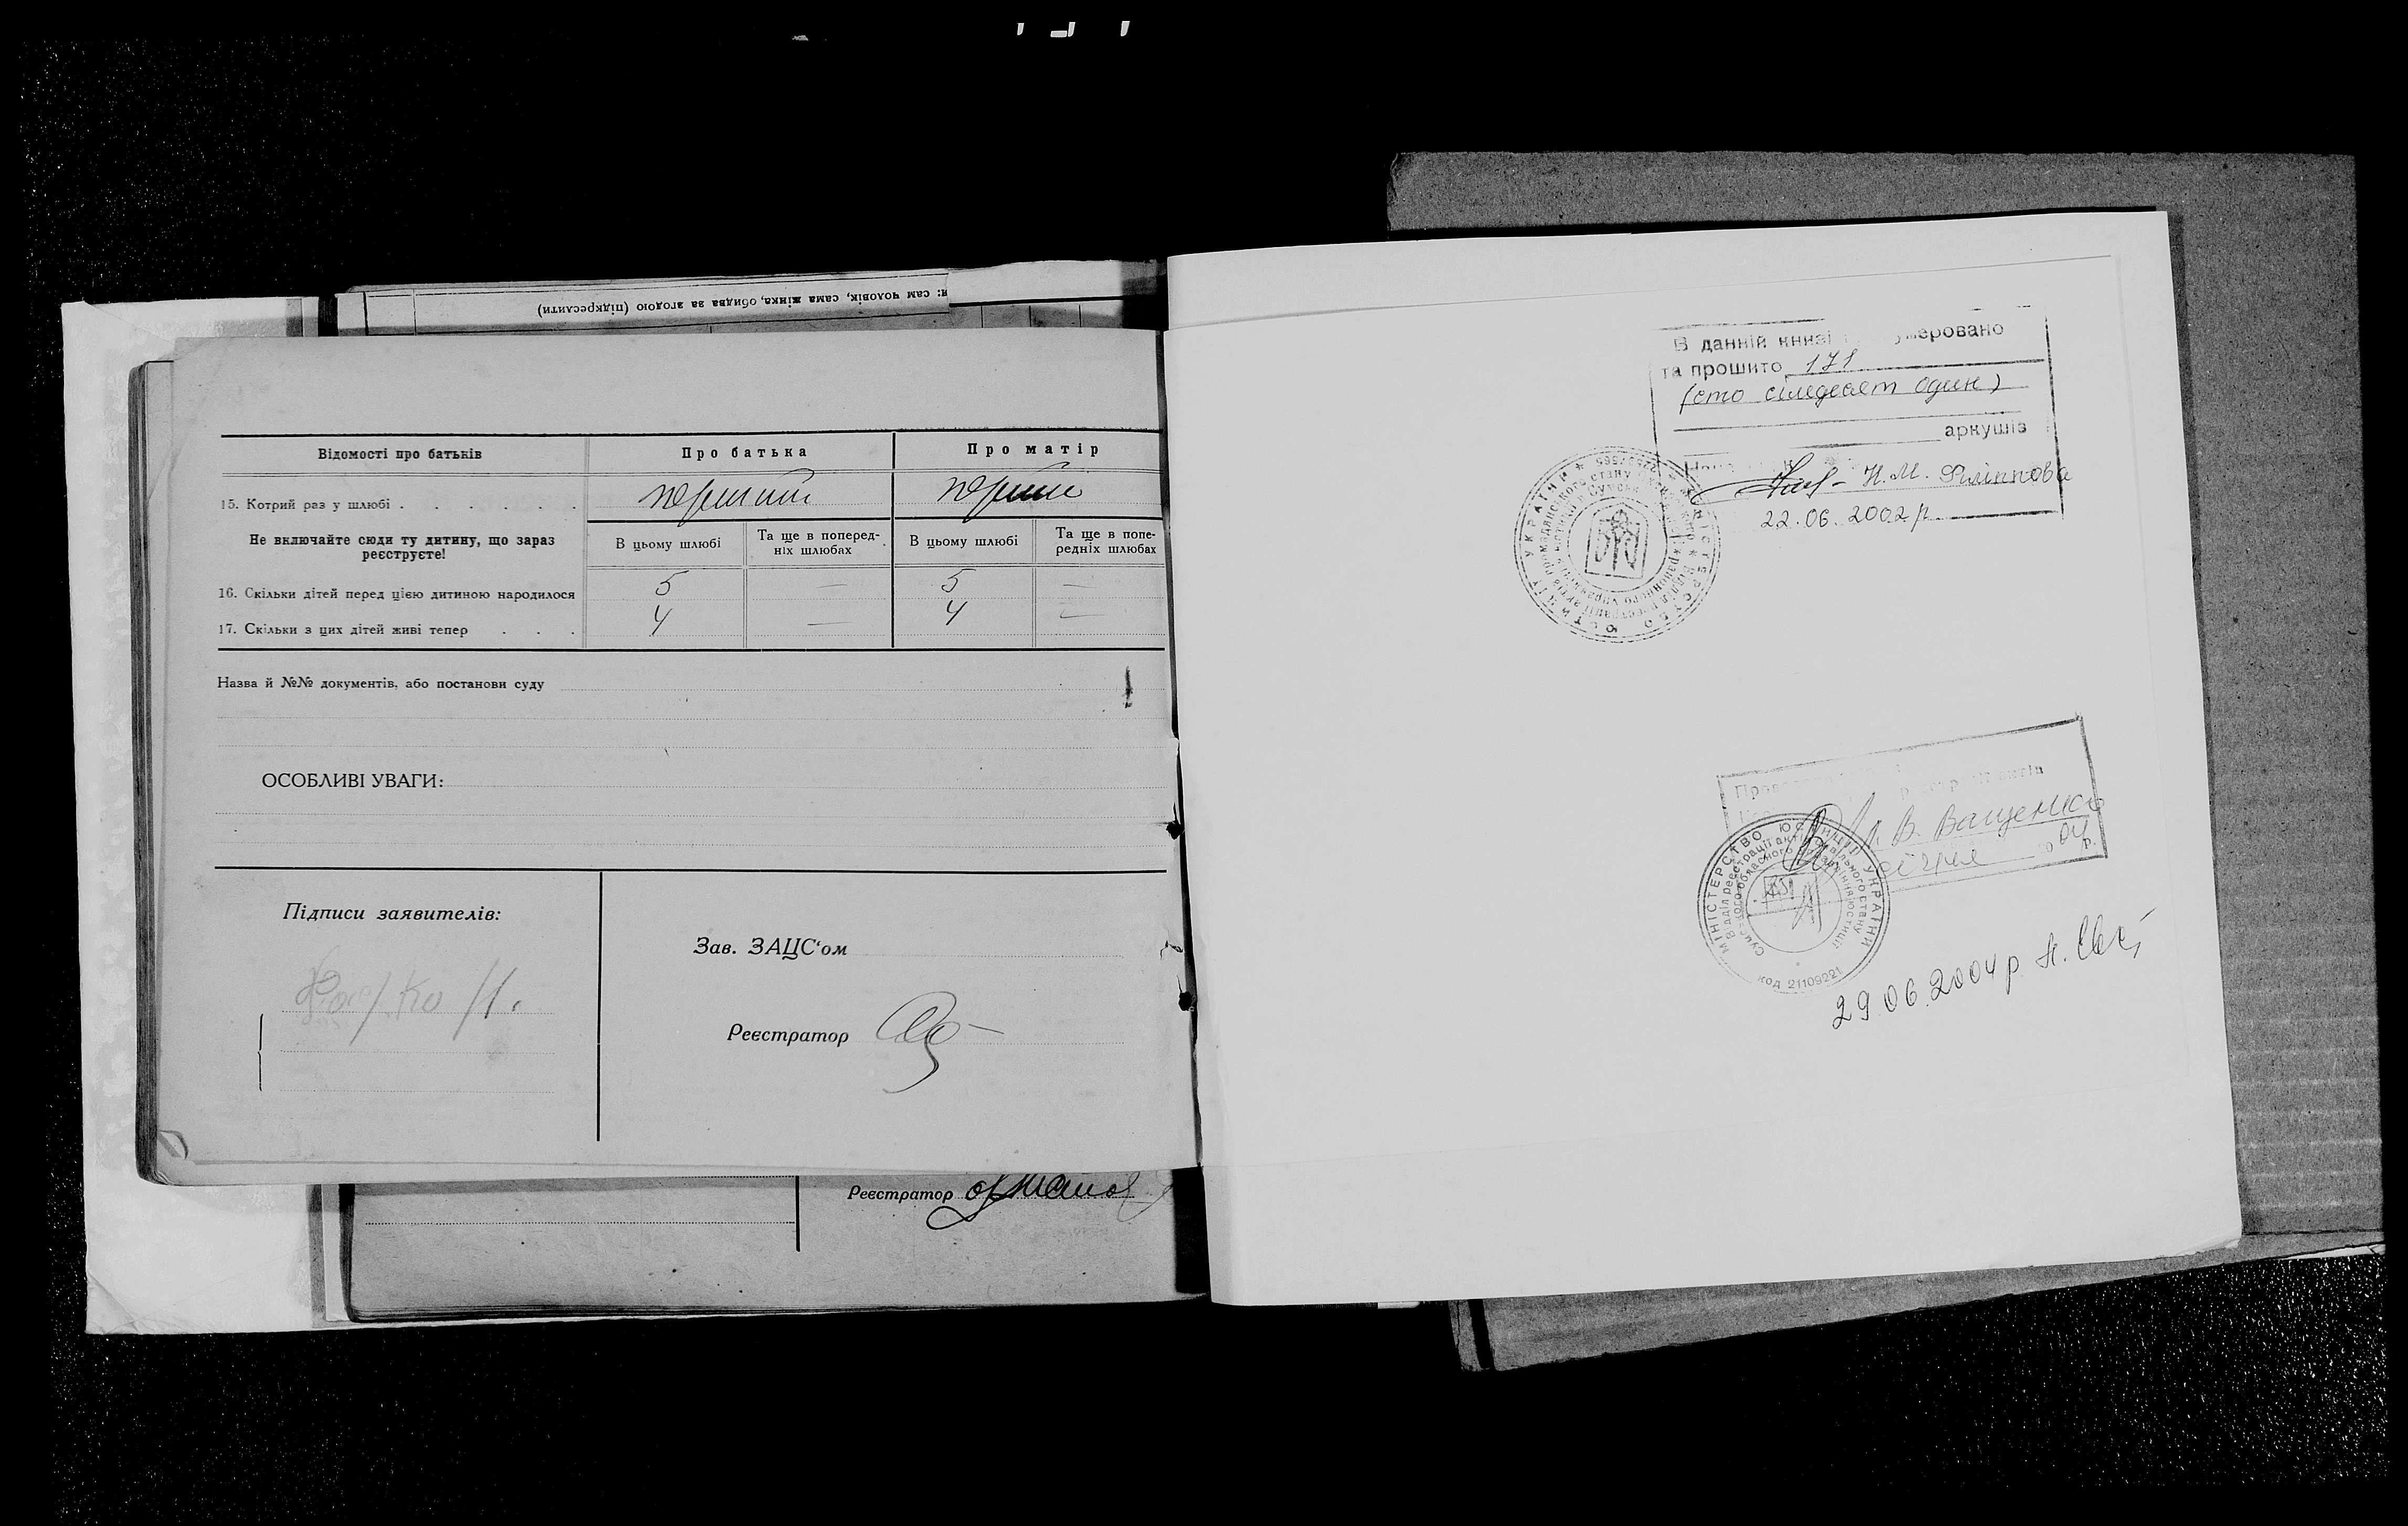 и: сам чоловік, сама жінка, обидва за згодою (підкреслити)
Відомості про батьків
Про батька
Про матір
15. Котрий раз у шлюбі
перший
перший
Не включайте сюди ту дитину, що зараз реєструєте!
В цьому шлюбі
Та ще в поперед-
ніх шлюбах
В цьому шлюбі
Та ще в попе-
редніх шлюбах
16. Скільки дітей перед цією дитиною народилося
5 — 5 —
17. Скільки з цих дітей живі тепер . . .
4 — 4 —
Назва й №№ документів, або постанови суду
ОСОБЛИВІ УВАГИ:
Підписи заявителів:
Зав. ЗАЦС'ом
Реєстратор
Реєстратор
В данній книзі
та прошито 171
(сто сімдесят один)
аркушів
Н.М. Філіппова
22.06.2002р.
УКРАЇНИ
МІНІСТЕРСТВО ЮСТИЦІЇ
В. Ващенко
04 р.
МІНІСТЕРСТВО ЮСТИЦІЇ УКРАЇНИ
Відділ реєстрації актів цивільного стану
Сумського обласного управління юстиції
код 21109221
29.06.2004р.